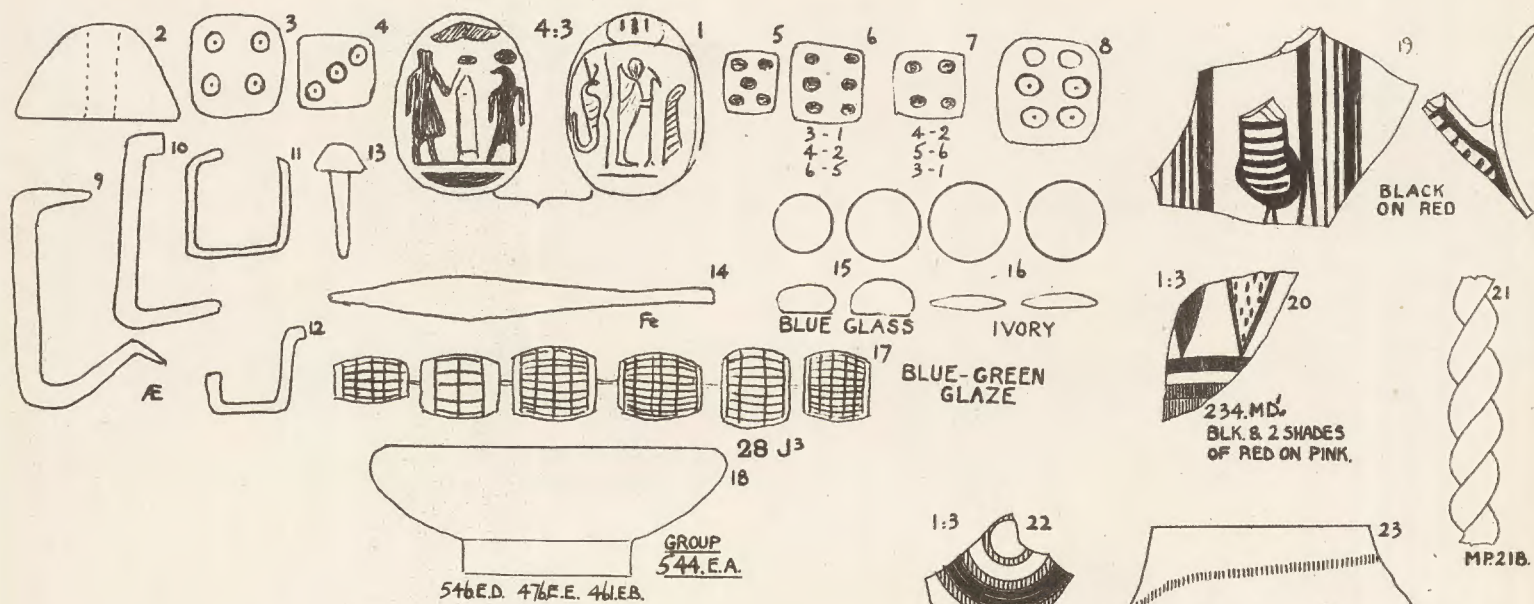 2
3
4
4:3
1
5
6
7
8
19
3-1
4-2
6-5
4-2
5-6
3-1
BLACK
ON RED
9
10
11
13
14
Fe
15
16
BLUE GLASS
IVORY
1:3
20
21
Æ
12
17
BLUE-GREEN
GLAZE
234.MD.
BLK. & 2 SHADES
OF RED ON PINK.
28 J³
18
GROUP
544.E.A.
546.E.D. 476.E.E. 461.E.B.
1:3
22
23
MP.21B.